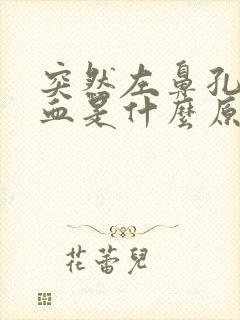 突然左鼻孔
血是什麼原
花蕾兒